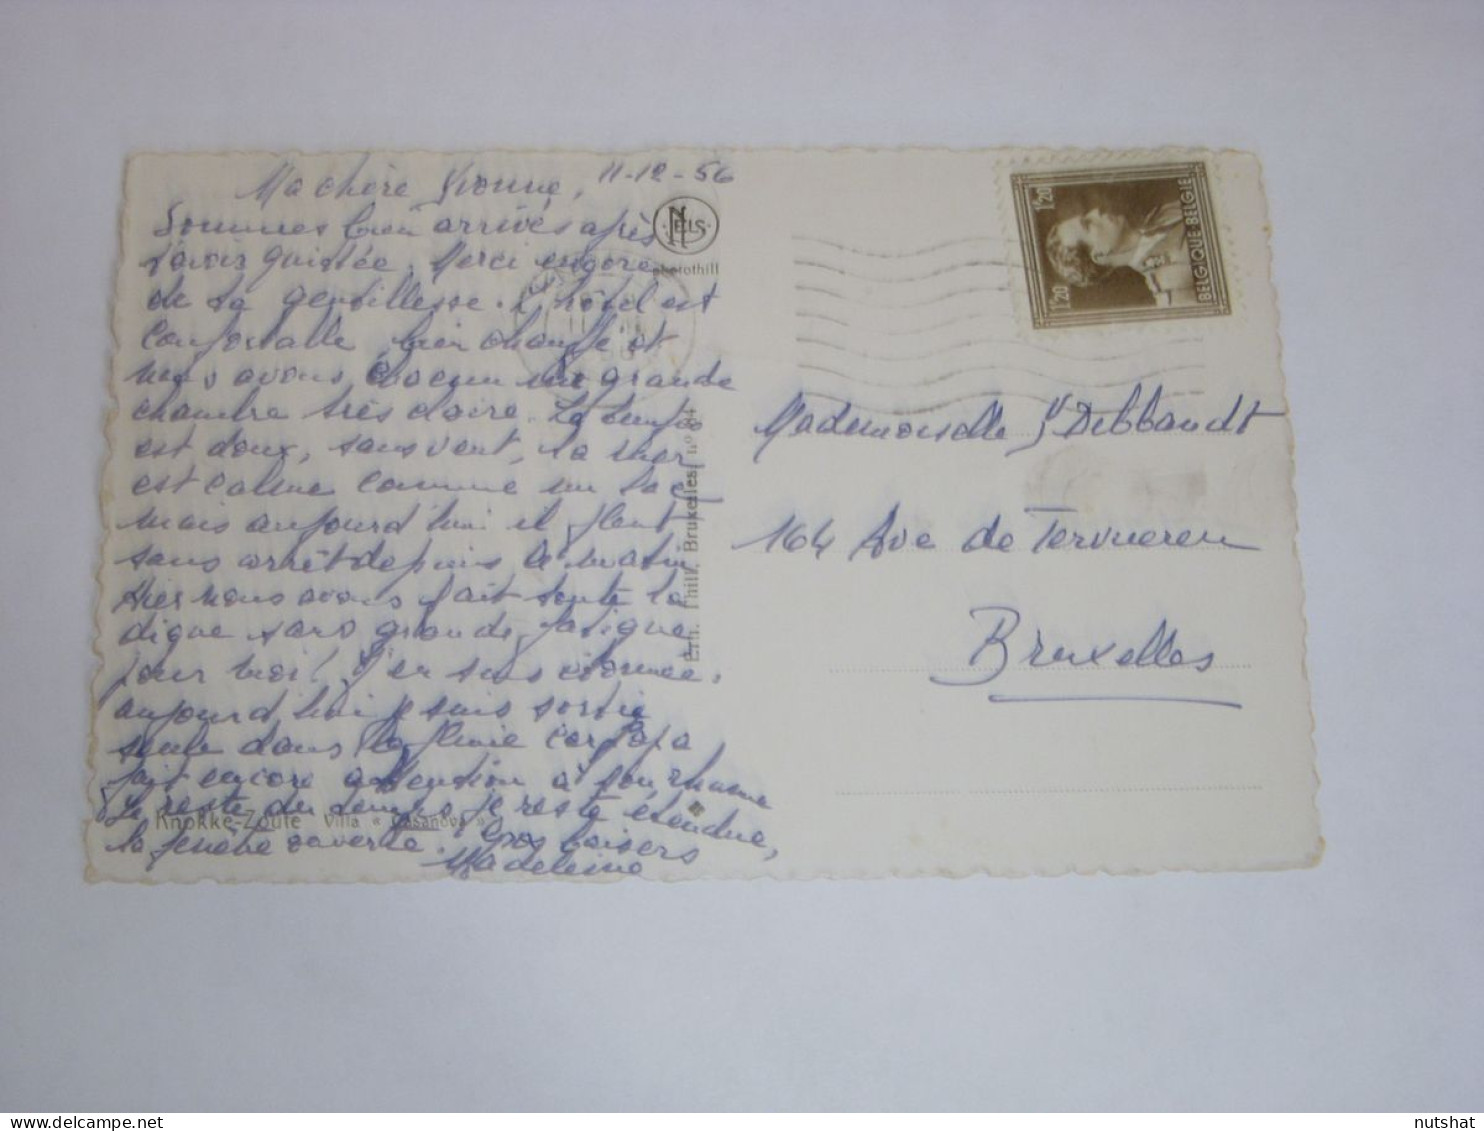 Ma chère Yvonne, 11-12-56
Sommes bien arrivés après
t'avoir quittée. Merci encore
de ta gentillesse. L'hôtel est
confortable bien chauffé et
nous avons chacun une grande
chambre très claire. Le temps
est doux, sans vent, la mer
est calme comme un lac
mais aujourd'hui il pleut
sans arrêt depuis le matin
Hier nous avons fait toute la
digue sans grande fatigue
pour moi! J'en suis étonnée,
aujourd'hui je suis sortie
seule dans la pluie car Papa
fait encore attention à son rhume
Le reste du temps je reste étendue,
la fenêtre ouverte. Gros baisers
Madeleine
NELS
photothill
Ern. Thill, Bruxelles, n° 84
Knokke-Zoute Villa « Casanova »
1F20
BELGIQUE BELGIE
1F20
Mademoiselle Y Debbaudt
164 Ave de Tervueren
Bruxelles
nutshat